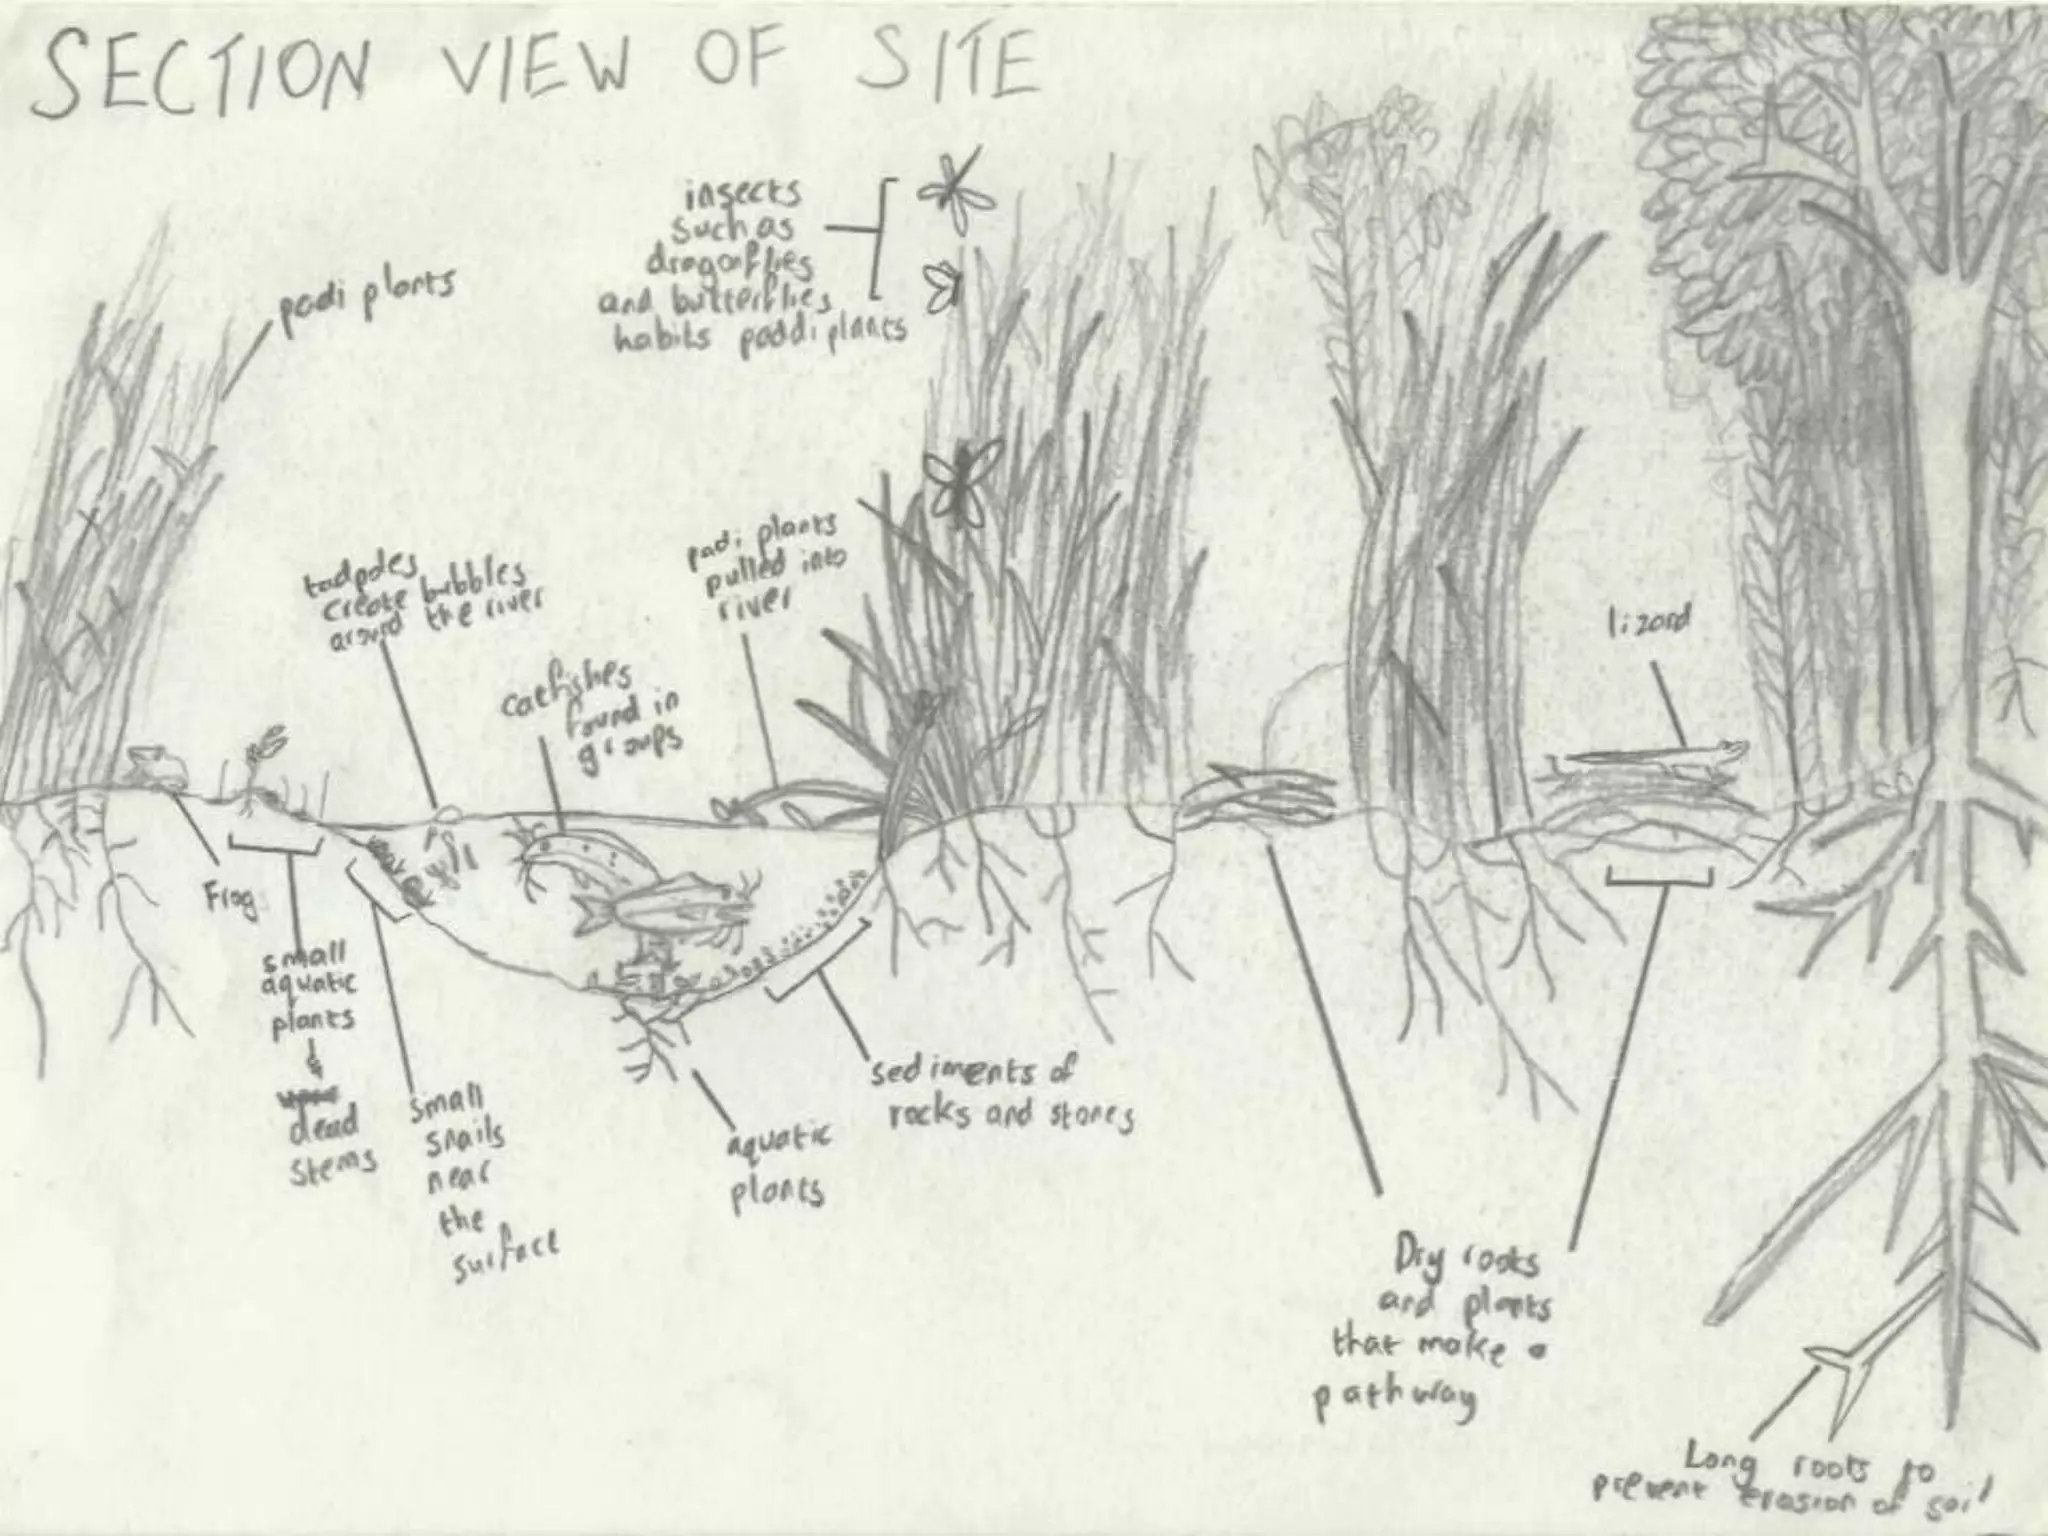 SECTION VIEW OF SITE
insects
such as
dragonflies
and butterflies
habits paddi plants
padi plants
tadpoles
create bubbles
around the river
catfishes
found in
groups
padi plants
pulled into
river
lizard
Frog
small
aquatic
plants
&
dead
stems
small
snails
near
the
surface
aquatic
plants
sediments of
rocks and stones
Dry roots
and plants
that make a
pathway
Long roots to
prevent erosion of soil